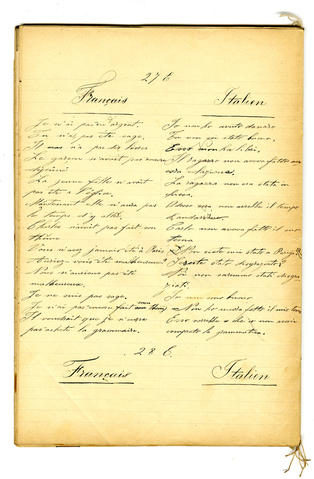 27 6.
Français
Je n'ai pas eu d'argent.
Tu n'as pas été sage.
Il nous n'a pas dix livres
Le garçon n'avait pas encore
déjeûné
La jeune fille n'avait
pas été à l'église.
Maintenant elle n'aura pas
le temps d'y aller.
Charles n'avait pas fait son
thème
Vous n'avez jamais été à Paris
Auriez-vous été malheureux?
Nous n'aurions pas été
malheureux.
Je ne suis pas sage.
Je n'ai pas encore fait mon thème
Il voudrait que je n'eusse
pas acheté la grammaire.
Italien
Io non ho avuto danaro
Tu non sei stato buono.
Esso non ha libri.
Il ragazzo non aveva fatto an-
cora
La ragazza non era stata in
chiesa.
Adesso essa non avrebbe il tempo
Carlo non aveva fatto il suo
tema
stato a Parigi?
stato disgraziato?
Noi non saremmo stati disgra-
ziati.
Io non sono buono
Non ho ancora fatto il mio tema
Esso vorrebbe che io non avessi
comprato la grammatica.
28 6.
Français
Italien